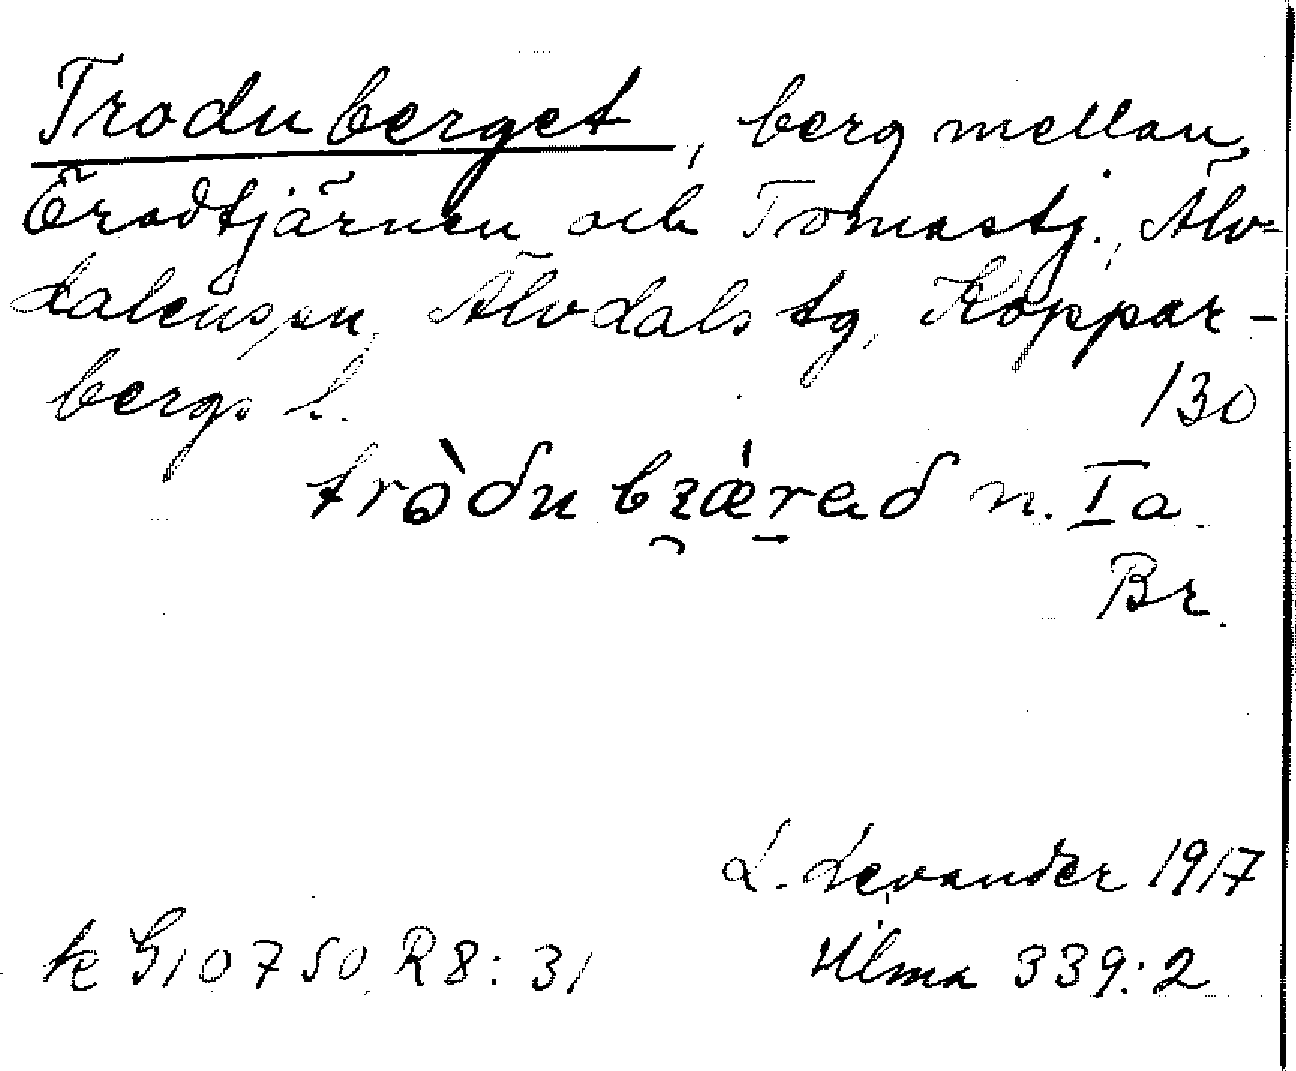 Troduberget, berg mellan
Öradtjärnen och Tomastj., Älv-
dalens sn, Älvdals tg, Koppar-
bergs l.
130
n. Ia.
Br.
L. Levander 1917
k G10750 R8:31
Ulma 339:2